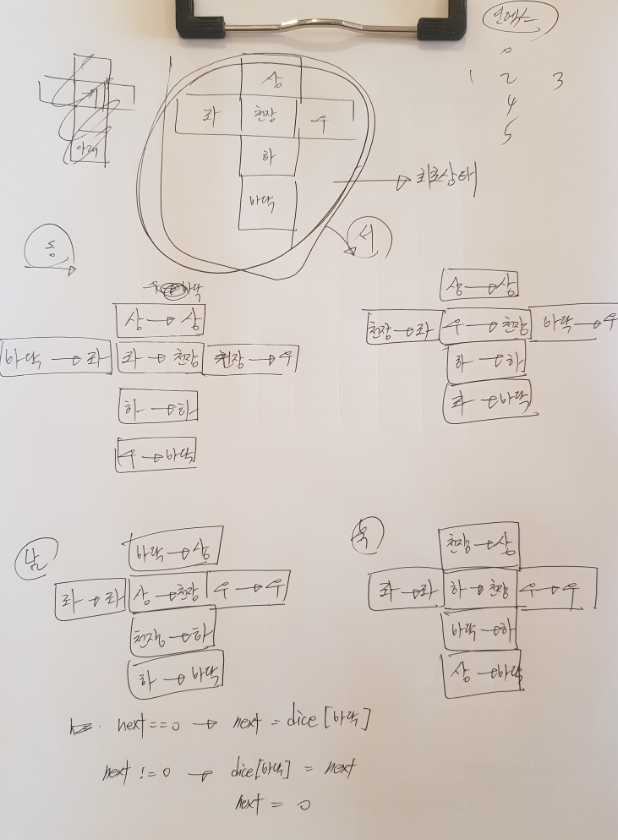 인덱스
0
1 2 3
4
5
아래
상
좌 천장 우
하
바닥
최초상태
서
동
바닥
상 → 상
바닥 → 좌 좌 → 천장 천장 → 우
하 → 하
우 → 바닥
상 → 상
천장 → 좌 우 → 천장 바닥 → 우
하 → 하
좌 → 바닥
남
바닥 → 상
좌 → 좌 상 → 천장 우 → 우
천장 → 하
하 → 바닥
북
천장 → 상
좌 → 좌 하 → 천장 우 → 우
바닥 → 하
상 → 바닥
next == 0 → next = dice [바닥]
next != 0 → dice[바닥] = next
next = 0